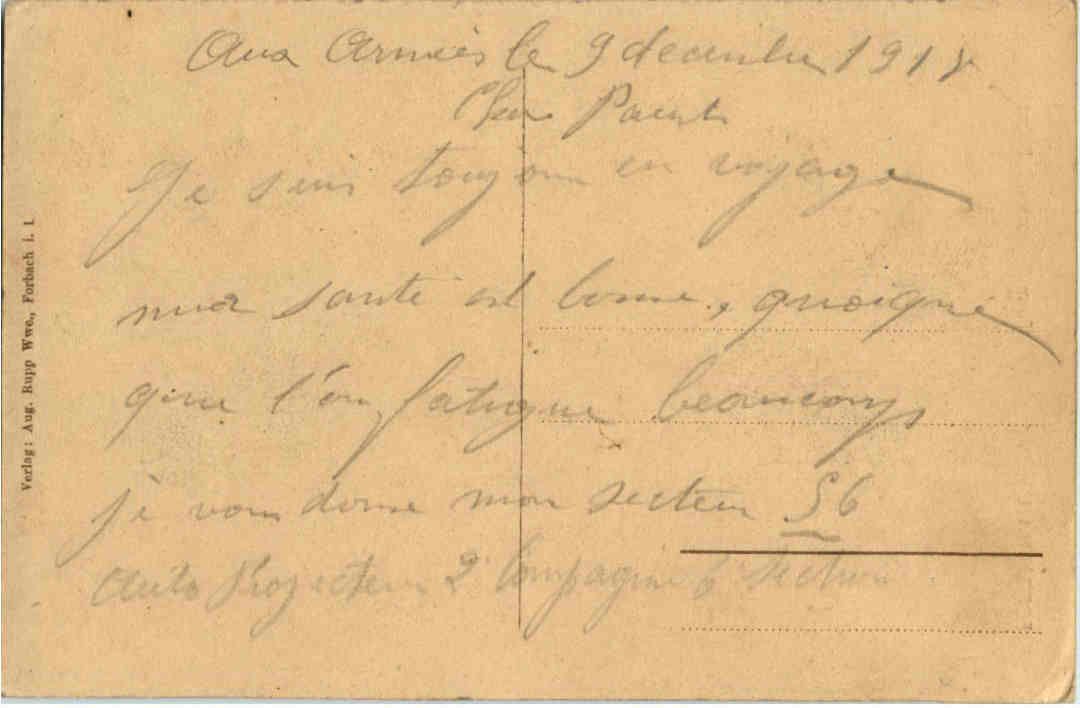 Aux Armées le 9 decembre 1918
Chers Parents
Je suis toujours en voyage
ma santé est bonne, quoique
que l'on fatigue beaucoup
je vous donne mon secteur 56
Auto Projecteur 2e Compagnie 6 Section
Verlag: Aug. Rupp Wwe., Forbach i. l.